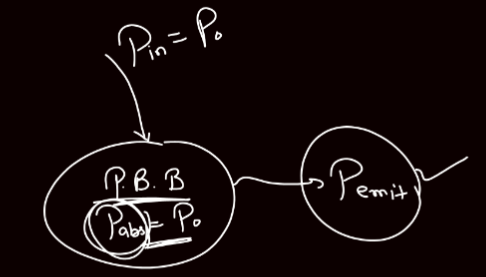 Pin = P₀
P.B.B
Pabs = P₀
Pemit